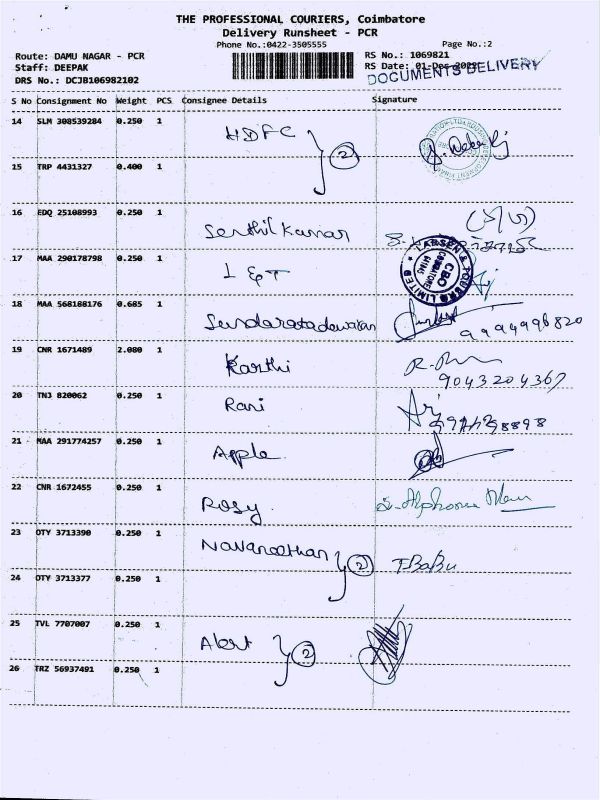 THE PROFESSIONAL COURIERS, Coimbatore
Delivery Runsheet - PCR
Phone No.:0422-3505555
Page No.:2
Route: DAMU NAGAR - PCR
RS No.: 1069821
Staff: DEEPAK
RS Date: 01-Dec-2020
DOCUMENTS DELIVERY
DRS No.: DCJB106982102
S No Consignment No Weight PCS Consignee Details Signature
14 SLM 308539284 0.250 1 HDFC 2
15 TRP 4431327 0.400 1
16 EDQ 25108993 0.250 1 Senthil Kumar
17 MAA 290178798 0.250 1 L & T
LARSEN & TOUBRO LIMITED
CBO
COIMBATORE
18 MAA 568188176 0.685 1 9994996820
19 CNR 1671489 2.080 1 Karthi
9043204367
20 TNJ 820062 0.250 1 Rani
21 MAA 291774257 0.250 1 Apple
22 CNR 1672455 0.250 1 Rosy
23 OTY 3713390 0.250 1 Navaneethan 2 T.Babu
24 OTY 3713377 0.250 1
25 TVL 7707007 0.250 1 Alert 2
26 TRZ 56937491 0.250 1